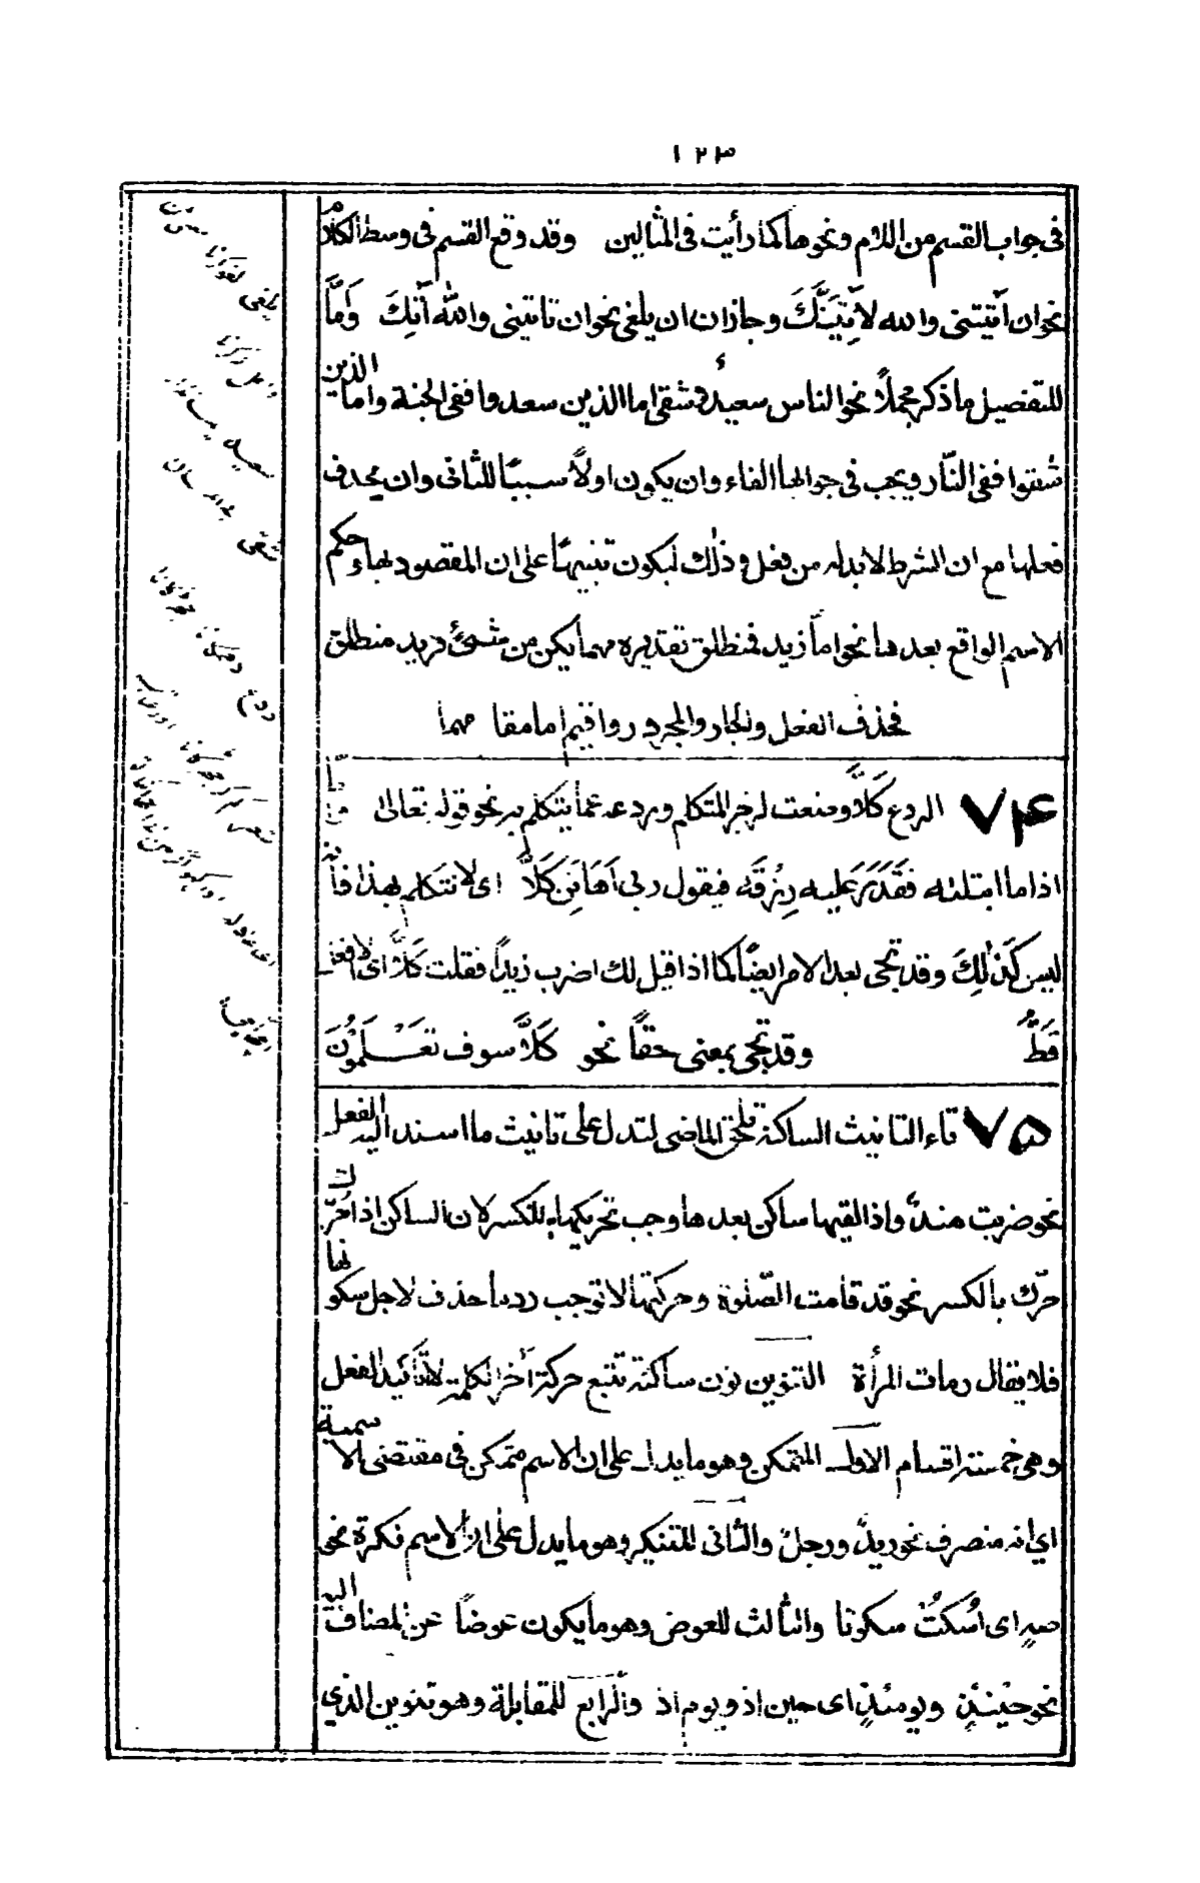 ١٢٣
فى جواب القسم من اللام ونحوها كما رأيت فى المثالين وقد وقع القسم فى وسط الكلام
نحو ان أتيتنى والله لأتِيَنَّكَ وجاز ان يلغى نحو ان تاتينى والله آتِكَ وَأمَّا
للتفصيل ما ذكر مجملاً نحو الناس سعيدٌ وشقى اما الذين سعدوا ففى الجنة واما الذين
شقوا ففى النّار ويجب فى جوابها الفاء وان يكون اولاً سببًا للثانى وان يحذف
فعلها مع ان الشرط لابد له من فعل وذلك ليكون تنبيهًا على ان المقصود بها حكم
الاسم الواقع بعدها نحو امّا زيد فمنطلق تقديره مهما يكن من شئ فزيد منطلق
فحذف الفعل والجار والمجرور واقيم اما مقام مهما
٧٤ الردع كَلَّا وضعت لزجر المتكلم وردعه عما يتكلم به نحو قوله تعالى وَامَّا
اذا ما ابتلىه فَقَدَرَ عليه رِزْقَه فيقول ربى أَهَانَنِ كَلَّا اى لا تتكلم بهذا فانه
ليس كَذٰلِكَ وقد تجى بعد الامر ايضًا كما اذا قيل لك اضرب زيدًا فقلت كَلَّا اى لا افعل
قَطُّ وقد تجى بمعنى حقاً نحو كَلَّا سوف تَعْـلَمُوْنَ
٧٥ تاء التانيث الساكنة تلحق الماضى لتدل على تانيث ما اسند اليه الفعل
نحو ضربت هندٌ واذا لقيها ساكن بعدها وجب تحريكها بالكسر لان الساكن اذا حُرّك
حرّك بالكسر نحو قد قامت الصّلوة وحركتها لا توجب رد ما حذف لاجل سكونها
فلا يقال رمات المرأة التنوين نون ساكنة تتبع حركة آخر الكلمة لا لتأكيد الفعل
وهى خمسة اقسام الاول المتمكن وهو ما يدل على ان الاسم متمكن فى مقتضى الاسمية
اى انه منصرف نحو زيدٌ ورجلٌ والثانى للتنكير وهو ما يدل على ان الاسم نكرة نحو
صهٍ اى اُسْكُتْ سكوتا والثالث للعوض وهو ما يكون عوضًا عن المضاف اليه
نحو حينئذٍ ويومئذٍ اى حين اذ ويوم اذ والرابع للمقابلة وهو تنوين الذي